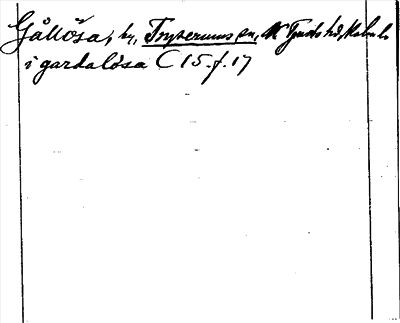 Gållösa, by, Tryserums sn, N Tjusts hd, Kalm. l.
i gardalösa C 15. f. 17